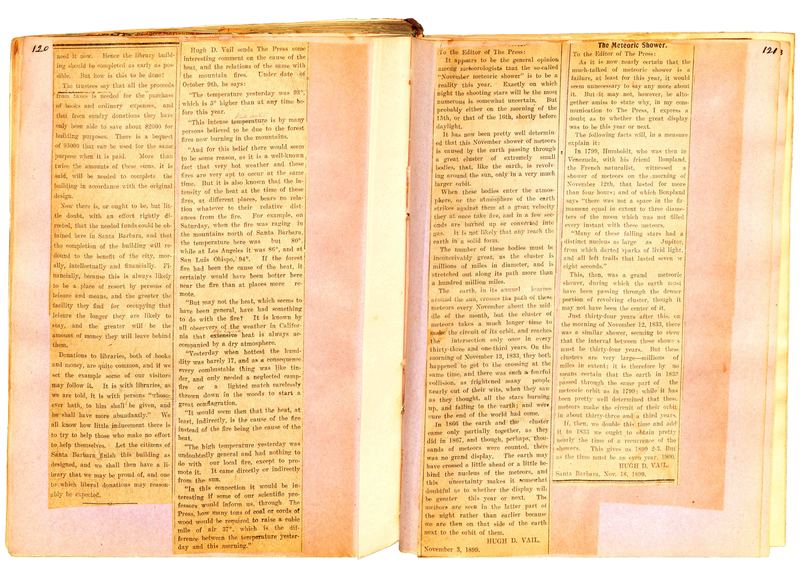 120
need it now. Hence the library build-
ing should be completed as early as pos-
sible. But how is this to be done?
The trustees say that all the proceeds
from taxes is needed for the purchase
of books and ordinary expenses, and
that from sundry donations they have
only been able to save about $2000 for
building purposes. There is a bequest
of $5000 that can be used for the same
purpose when it is paid. More than
twice the amounts of these sums, it is
said, will be needed to complete the
building in accordance with the original
design.
Now there is, or ought to be, but lit-
tle doubt, with an effort rightly di-
rected, that the needed funds could be ob-
tained here in Santa Barbara, and that
the completion of the building will re-
dound to the benefit of the city, mor-
ally, intellectually and financially. Fi-
nancially, because this is always likely
to be a place of resort by persons of
leisure and means, and the greater the
facility they find for occupying that
leisure the longer they are likely to
stay, and the greater will be the
amount of money they will leave behind
them.
Donations to libraries, both of books
and money, are quite common, and if we
set the example some of our visitors
may follow it. It is with libraries, as
we are told, it is with persons "whoso-
ever hath, to him shall be given, and
he shall have more abundantly." We
all know how little inducement there is
to try to help those who make no effort
to help themselves. Let the citizens of
Santa Barbara finish this building as
designed, and we shall then have a li-
brary that we may be proud of, and one
to which liberal donations may reason-
ably be expected.
Hugh D. Vail sends The Press some
interesting comment on the cause of the
heat, and the relations of the same with
the mountain fires. Under date of
October 9th, he says:
"The temperature yesterday was 93°,
which is 3° higher than at any time be-
fore this year.
"This intense temperature is by many
persons believed to be due to the forest
fires now burning in the mountains.
"And for this belief there would seem
to be some reason, as it is a well-known
fact that very hot weather and these
fires are very apt to occur at the same
time. But it is also known that the in-
tensity of the heat at the time of these
fires, at different places, bears no rela-
tion whatever to their relative dist-
ances from the fires. For example, on
Saturday, when the fire was raging in
the mountains north of Santa Barbara,
the temperature here was but 80°,
while at Los Angeles it was 86°, and at
San Luis Obispo, 94°. If the forest
fire had been the cause of the heat, it
certainly would have been hotter here
near the fire than at places more re-
mote.
"But may not the heat, which seems to
have been general, have had something
to do with the fire? It is known by
all observers of the weather in Califor-
nia that excessive heat is always ac-
companied by a dry atmosphere.
"Yesterday when hottest the humid-
ity was barely 17, and as a consequence
every combustible thing was like tin-
der, and only needed a neglected camp-
fire or a lighted match carelessly
thrown down in the woods to start a
great conflagration.
"It would seem then that the heat, at
least, indirectly, is the cause of the fire
instead of the fire being the cause of the
heat.
"The high temperature yesterday was
undoubtedly general and had nothing to
do with our local fire, except to pro-
mote it. It came directly or indirectly
from the sun.
"In this connection it would be in-
teresting if some of our scientific pro-
fessors would inform us, through The
Press, how many tons of coal or cords of
wood would be required to raise a cubic
mile of air 37°, which is the dif-
ference between the temperature yester-
day and this morning."
To the Editor of The Press:
It appears to be the general opinion
among meteorologists that the so-called
"November meteoric shower" is to be a
reality this year. Exactly on which
night the shooting stars will be the most
numerous is somewhat uncertain. But
probably either on the morning of the
15th, or that of the 16th, shortly before
daylight.
It has now been pretty well determin-
ed that this November shower of meteors
is caused by the earth passing through
a great cluster of extremely small
bodies, that, like the earth, is revolv-
ing around the sun, only in a very much
larger orbit.
When these bodies enter the atmos-
phere, or the atmosphere of the earth
strikes against them at a great velocity
they at once take fire, and in a few sec-
onds are burned up or converted into
gas. It is not likely that any reach the
earth in a solid form.
The number of these bodies must be
inconceivably great, as the cluster is
millions of miles in diameter, and is
stretched out along its path more than
a hundred million miles.
The earth, in its annual journey
around the sun, crosses the path of these
meteors every November about the mid-
dle of the month, but the cluster of
meteors takes a much longer time to
make the circuit of its orbit, and reaches
the intersection only once in every
thirty-three and one-third years. On the
morning of November 13, 1833, they both
happened to get to the crossing at the
same time, and there was such a fearful
collision, as frightened many people
nearly out of their wits, when they saw
as they thought, all the stars burning
up, and falling to the earth; and were
sure the end of the world had come.
In 1866 the earth and the cluster
came only partially together, as they
did in 1867, and though, perhaps, thou-
sands of meteors were counted, there
was no grand display. The earth may
have crossed a little ahead or a little be-
hind the nucleus of the meteors, and
this uncertainty makes it somewhat
doubtful as to whether the display will
be greater this year or next. The
meteors are seen in the latter part of
the night rather than earlier because
we are then on that side of the earth
next to the orbit of them.
HUGH D. VAIL.
November 3, 1899.
121
The Meteoric Shower.
To the Editor of The Press:
As it is now nearly certain that the
much-talked of meteoric shower is a
failure, at least for this year, it would
seem unnecessary to say any more about
it. But it may not, however, be alto-
gether amiss to state why, in my com-
munication to The Press, I express a
doubt as to whether the great display
was to be this year or next.
The following facts will, in a measure
explain it:
In 1799, Humboldt, who was then in
Venezuela, with his friend Bonpland,
the French naturalist, witnessed a
shower of meteors on the morning of
November 12th, that lasted for more
than four hours; and of which Bonpland
says "there was not a space in the fir-
mament equal in extent to three diame-
ters of the moon which was not filled
every instant with these meteors.
"Many of these falling stars had a
distinct nucleus as large as Jupiter,
from which darted sparks of livid light,
and all left trails that lasted seven or
eight seconds."
This, then, was a grand meteoric
shower, during which the earth must
have been passing through the denser
portion of revolving cluster, though it
may not have been the center of it.
Just thirty-four years after this, on
the morning of November 12, 1833, there
was a similar shower, seeming to show
that the interval between these showers
must be thirty-four years. But these
clusters are very large—millions of
miles in extent; it is therefore by no
means certain that the earth in 1833
passed through the same part of the
meteoric orbit as in 1799; while it has
been pretty well determined that these
meteors make the circuit of their orbit
in about thirty-three and a third years.
If, then, we double this time and add
to 1833 we ought to obtain pretty
nearly the time of a recurrence of the
showers. This gives us 1899 2-3. But
as the time must be an even year, 1900.
HUGH D. VAIL.
Santa Barbara, Nov. 18, 1899.